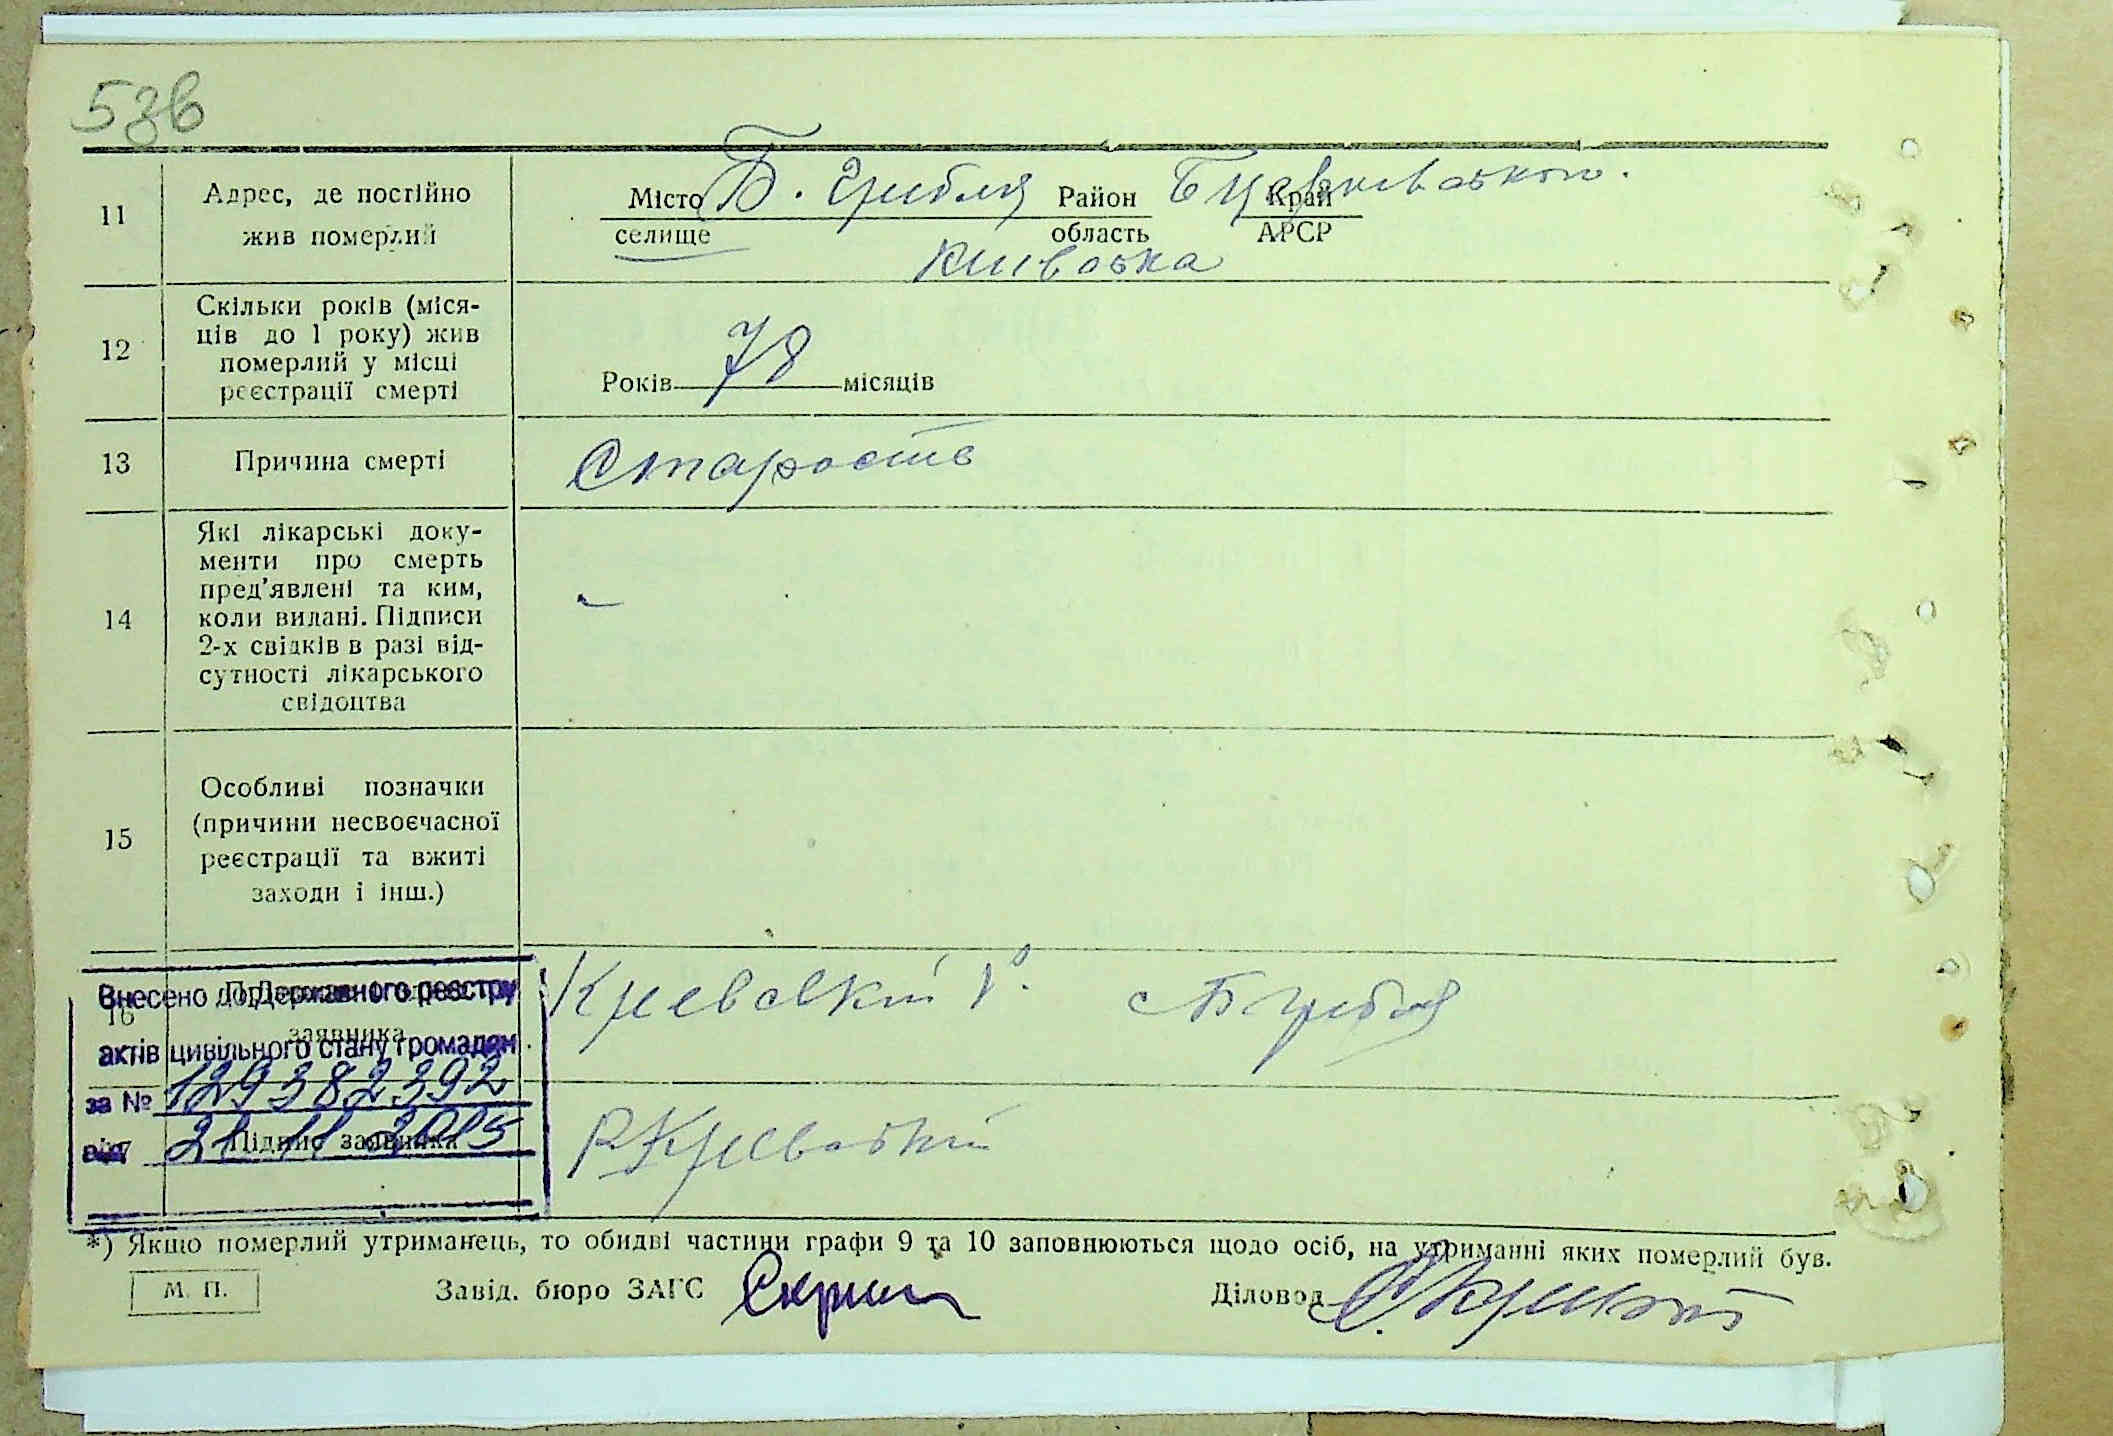 53в
11
Адрес, де постійно
жив померлий
Місто Б. Гребля Район Бцерківського. Край
селище область АРСР
Київська
12
Скільки років (міся-
ців до 1 року) жив
померлий у місці
реєстрації смерті
Років 78 місяців
13
Причина смерті
Старость
14
Які лікарські доку-
менти про смерть
пред’явлені та ким,
коли видані. Підписи
2-х свідків в разі від-
сутності лікарського
свідоцтва
15
Особливі позначки
(причини несвоєчасної
реєстрації та вжиті
заходи і інш.)
16
заявника
Внесено до Державного реєстру
актів цивільного стану громадян
за № 129382392
від 21 11 2015
с Б гребля
17
Підпис заявника
*) Якщо померлий утриманець, то обидві частини графи 9 та 10 заповнюються щодо осіб, на утриманні яких померлий був.
М. П.
Завід. бюро ЗАГС
Діловод